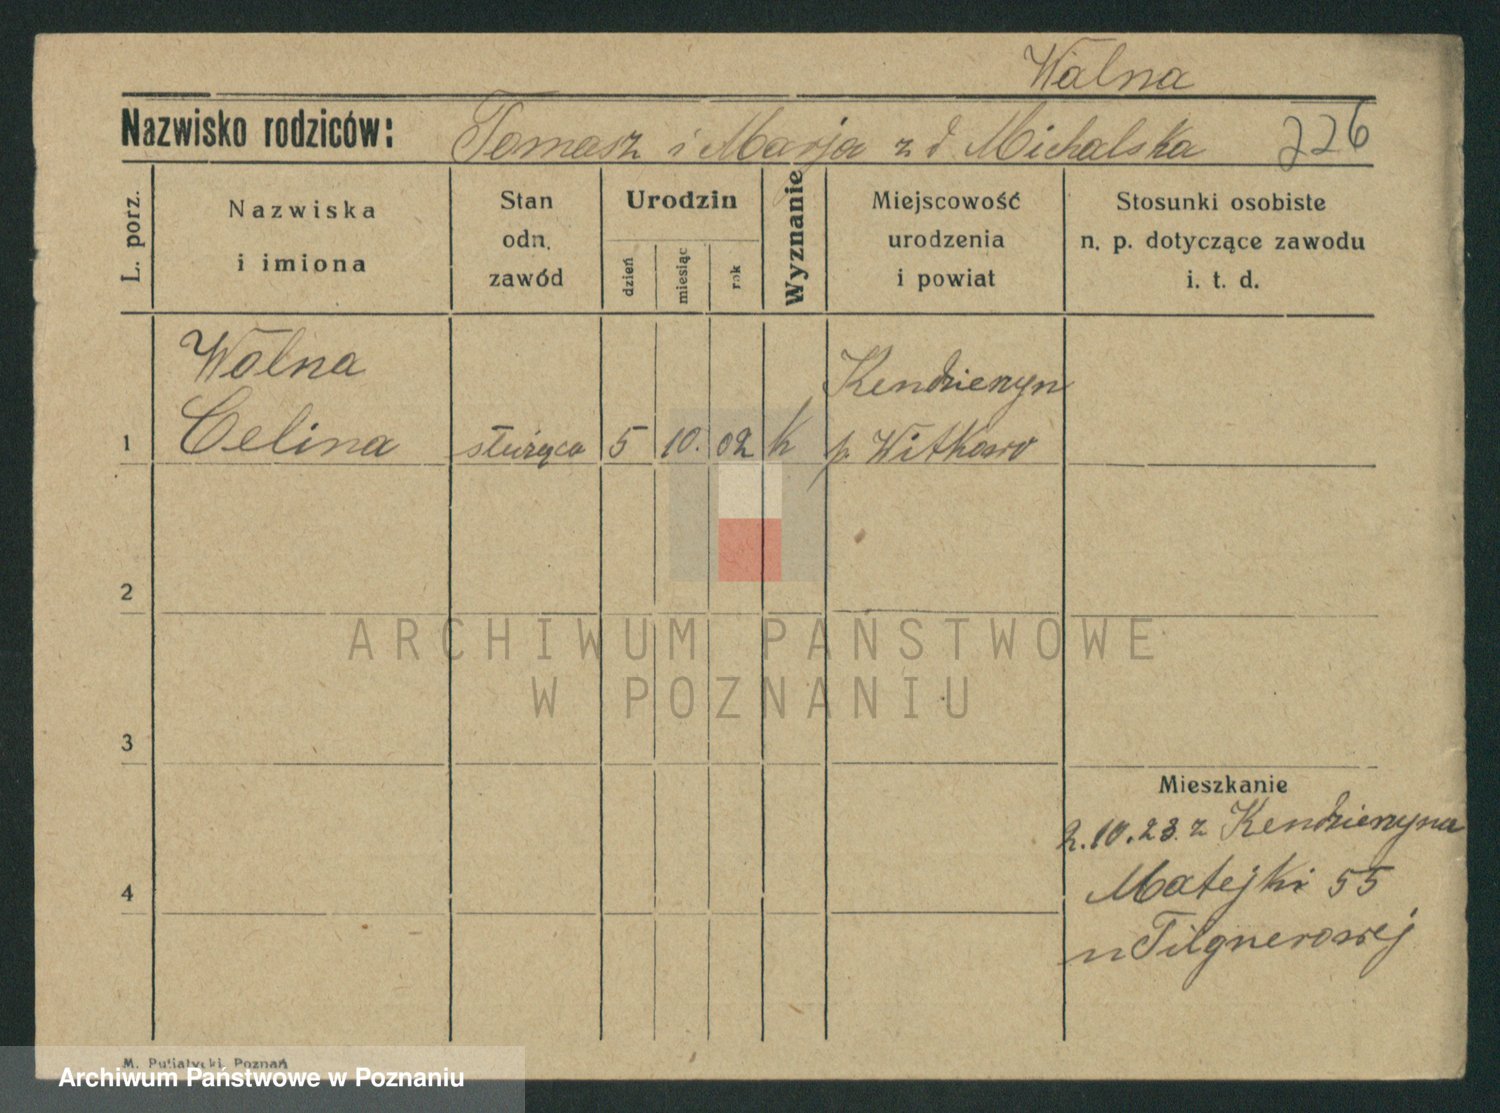 Walna
Nazwisko rodziców: Tomasz i Marja z d Michalska 226
L. porz.
Nazwiska
i imiona
Stan
odn.
zawód
Urodzin
dzień
miesiąc
rok
Wyznanie
Miejscowość
urodzenia
i powiat
Stosunki osobiste
n. p. dotyczące zawodu
i. t. d.
Walna Kendzierzyn
1 Celina służąca 5 10. 02 k p. Witkowo
2
ARCHIWUM PAŃSTWOWE
W POZNANIU
3
Mieszkanie
2.10.23. z Kendzierzyna
4 Matejki 55
u Tilgnerowej
M. Putiatycki, Poznań
Archiwum Państwowe w Poznaniu